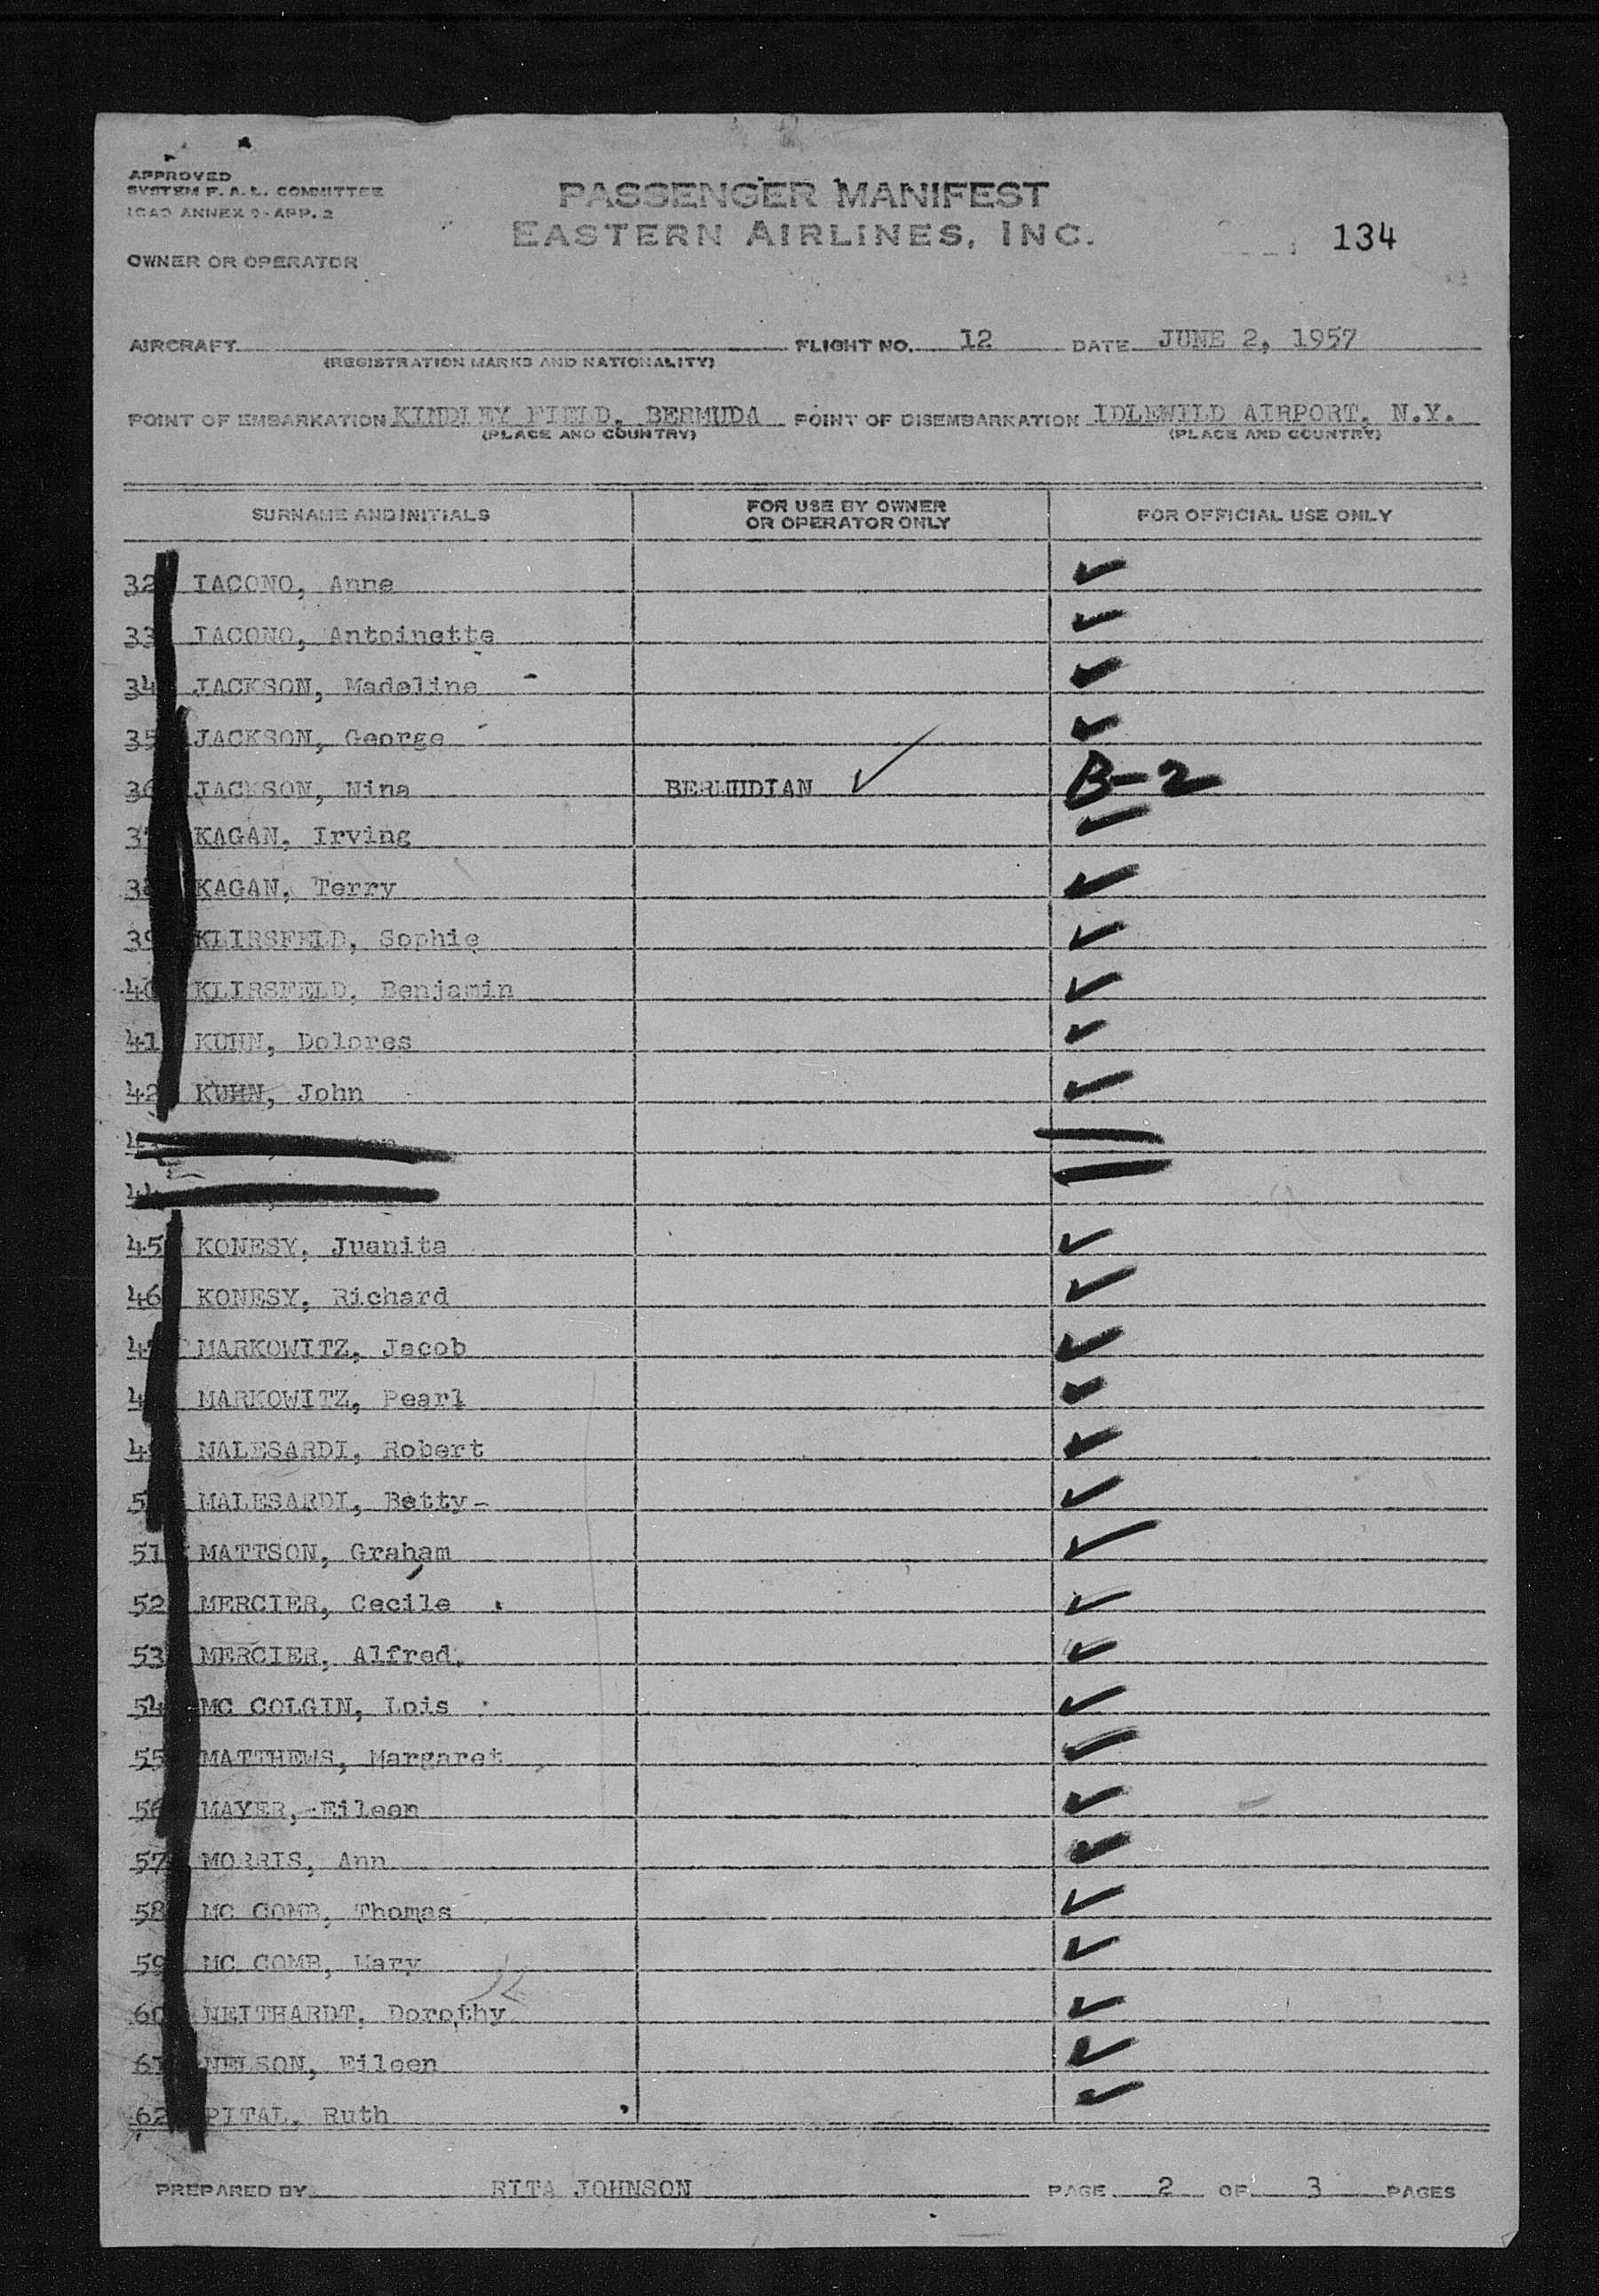 APPROVED
SYSTEM F. A. L. COMMITTEE
ICAO ANNEX 9 - APP. 2
PASSENGER MANIFEST
EASTERN AIRLINES, INC.
134
OWNER OR OPERATOR
AIRCRAFT FLIGHT NO. 12 DATE JUNE 2, 1957
(REGISTRATION MARKS AND NATIONALITY)
POINT OF EMBARKATION KINDLEY FIELD, BERMUDA POINT OF DISEMBARKATION IDLEWILD AIRPORT, N.Y.
(PLACE AND COUNTRY) (PLACE AND COUNTRY)
SURNAME AND INITIALS FOR USE BY OWNER OR OPERATOR ONLY FOR OFFICIAL USE ONLY
32 IACONO, Anne ✓
33 IACONO, Antoinette ✓
34 JACKSON, Madeline ✓
35 JACKSON, George ✓
36 JACKSON, Nina BERMUDIAN ✓ B-2
37 KAGAN, Irving ✓
38 KAGAN, Terry ✓
39 KLIRSFELD, Sophie ✓
40 KLIRSFELD, Benjamin ✓
41 KUHN, Dolores ✓
42 KUHN, John ✓
43
44
45 KONESY, Juanita ✓
46 KONESY, Richard ✓
47 MARKOWITZ, Jacob ✓
48 MARKOWITZ, Pearl ✓
49 MALESARDI, Robert ✓
50 MALESARDI, Betty ✓
51 MATTSON, Graham ✓
52 MERCIER, Cecile ✓
53 MERCIER, Alfred ✓
54 MC COLGIN, Lois ✓
55 MATTHEWS, Margaret ✓
56 MAYER, Eileen ✓
57 MORRIS, Ann ✓
58 MC COMB, Thomas ✓
59 MC COMB, Mary ✓
60 NEITHARDT, Dorothy ✓
61 NELSON, Eileen ✓
62 PITAL, Ruth ✓
PREPARED BY RITA JOHNSON PAGE 2 OF 3 PAGES